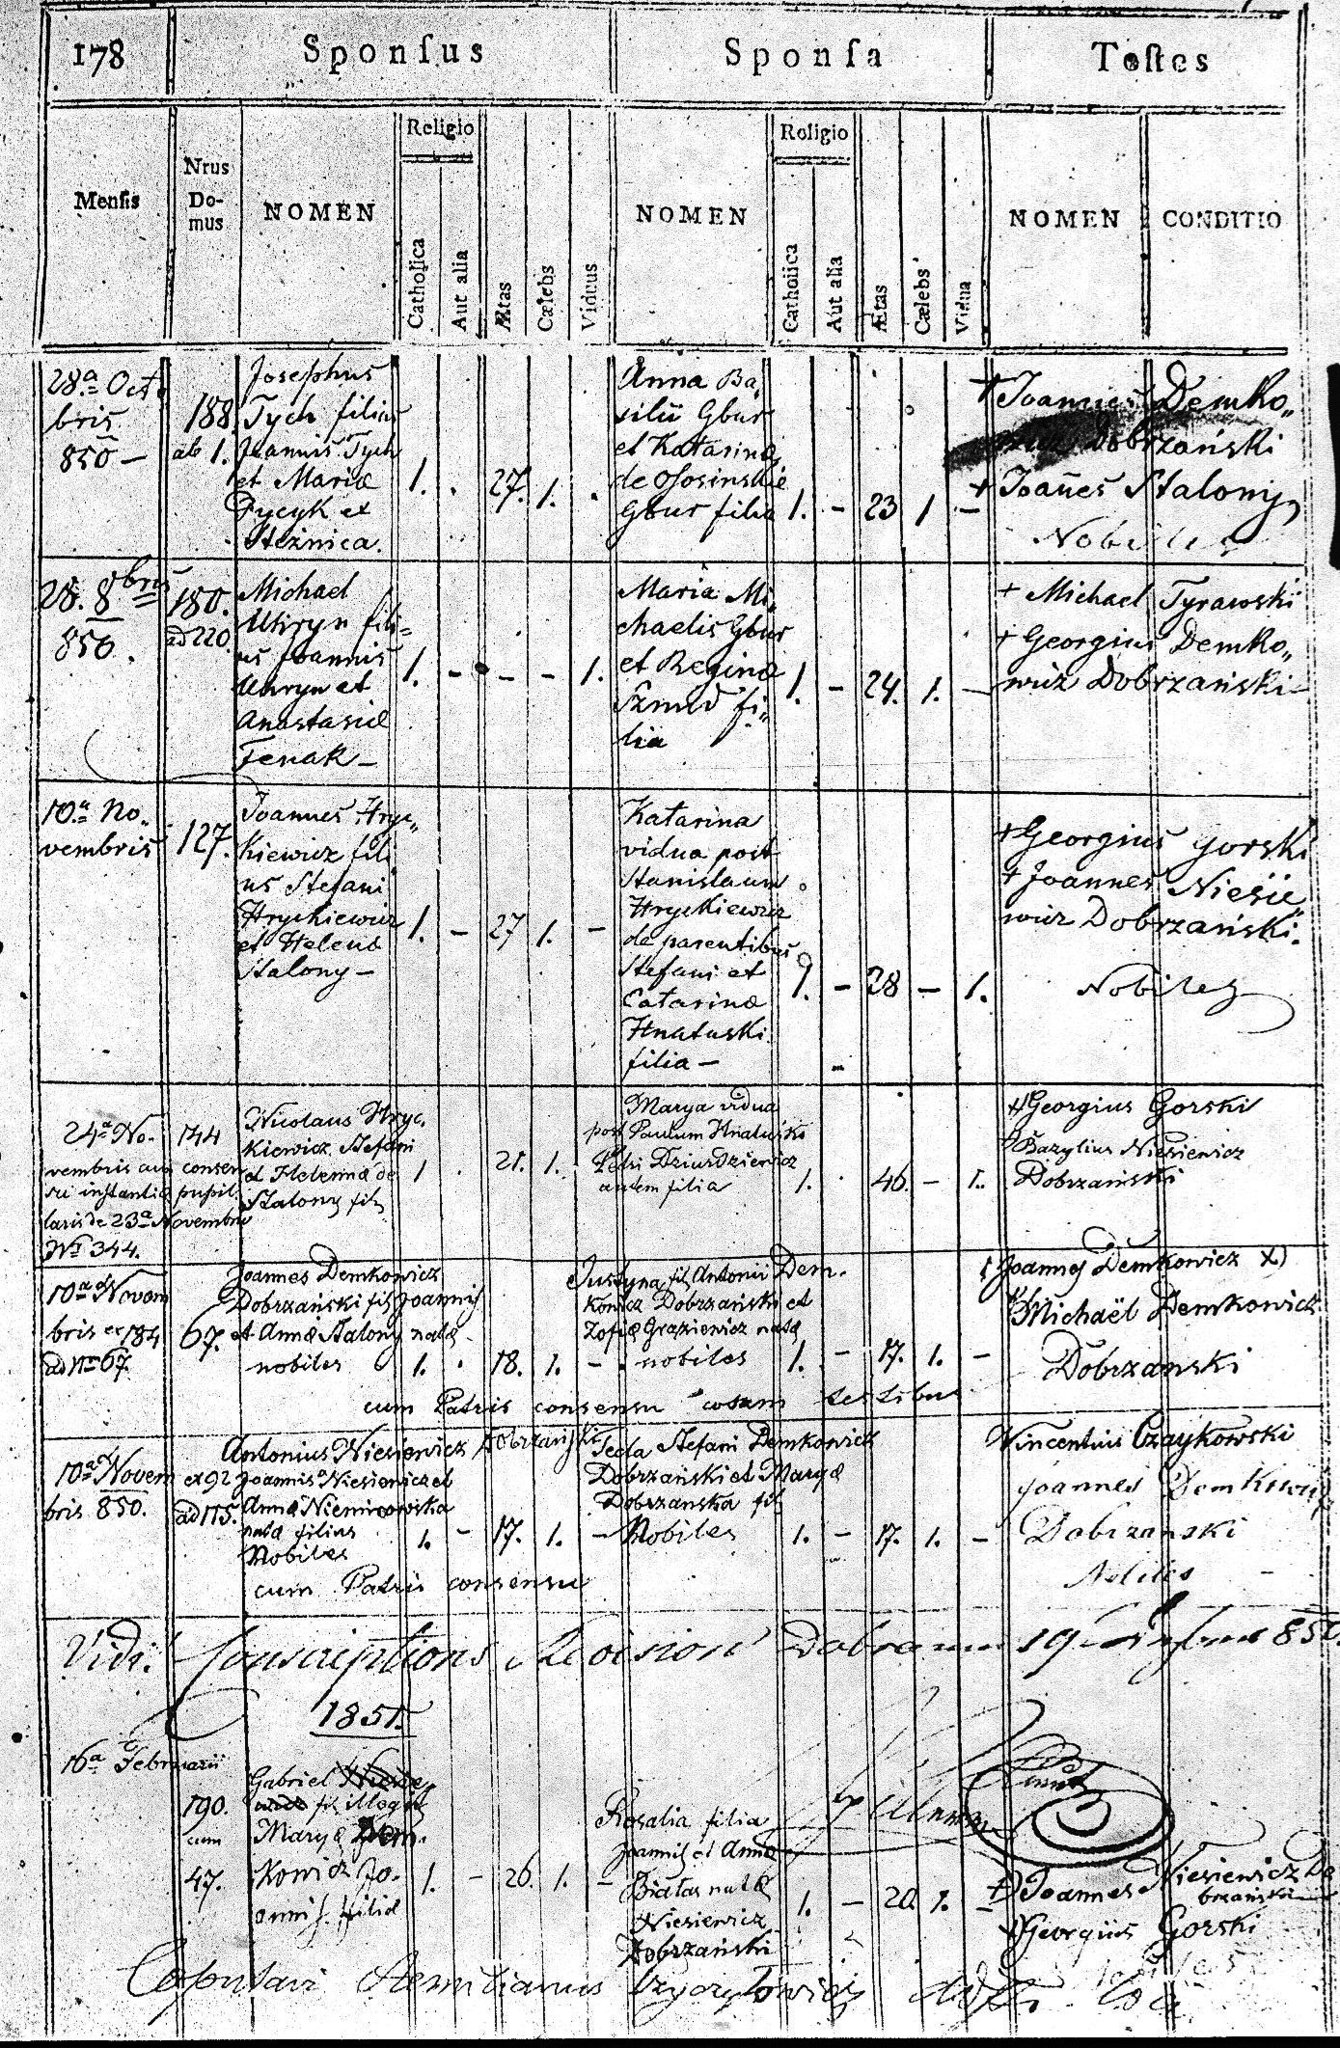 178 Sponſus Sponſa Teſtes
Menſis Nrus Domus NOMEN Religio Catholica Aut alia Ætas Cælebs Viduus NOMEN Religio Catholica Aut alia Ætas Cælebs Vidua NOMEN CONDITIO
28.a Octo
bris
850 —
188.
ab 1.
Josephus
Tych filius
Joannis Tych
et Mariæ
Pycyk et
Steżnica.
1. . 27. 1. .
Anna Ba„
silii Gbur
et Katarinæ
de Ososinskie
Gbur filia
1. – 23 1 –
+ Joannes Demko„
Dobrzański
+ Joañes Stalony
Nobiles
28. 8bris
850.
180.
ad 220.
Michael
Uhryn fili=
us Joannis
Uhryn et
Anastasiæ
Fenak —
1. – – – 1.
Maria Mi„
chaelis Gbur
et Reginæ
Szmud fi„
lia
1. – 24. 1. –
+ Michael Tyrawski
+ Georgius Demko„
wicz Dobrzański —
10.a No„
vembris
127.
Joannes Hryc„
kiewicz fili
us Stefani
Hryckiewicz
et Helenæ
Stalony —
1. – 27 1. –
Katarina
vidua post
Stanislaum
Hryckiewicz
de parentibus
Stefani et
Catarinæ
Hnatuski
filia —
1. – 28 – 1.
+ Georgius Gorski
+ Joannes Niesie
wicz Dobrzański.
Nobiles
24a No.
vembris cum consen
su instantiæ pupil.
laris de 23a Novembris
Nr 344.
144
Nicolaus Hryc.
kiewicz Stefani
et Helennæ de
Stalony fil
1 . 21. 1. .
Marya vidua
post Paulum Hnatuśko
Petri Dziurdziewicz
autem filia
1. . 46. – 1.
+ Georgius Gorski
+ Bazylius Niesiewicz
Dobrzański
10a Novem
bris ex 184
ad Nr 67.
67.
Joannes Demkowicz
Dobrzański fil Joannis
et Annæ Stalony natæ
nobiles
1. . 18. 1. –
Justyna fil Antonii Dem.
kowicz Dobrzański et
Zofiæ Graziewicz natæ
nobiles
1. – 17. 1. –
Joannes Demkowicz X)
+ Michaël Demkowicz
Dobrzanski
cum Patris consensu coram testibus
10a Novem
bris 850.
ex 92
ad 175.
Antonius Niesiewicz Dobrzański
Joannis Niesiewicz et
Annæ Niemirowska
natæ filius
Nobiles
1. – 17. 1. –
Tecla Stefani Demkowicz
Dobrzański et Maryæ
Dobrzanska fil
Nobiles
1. – 17. 1. –
Vincentius Czaykowski
Joannes Demkowicz
Dobrzanski
Nobiles
cum Patris consensu
Vidi. Conscriptions Revision 19
1851.
16a Februarii
190.
cum
47.
Gabriel
fil illegit
Maryæ Dem.
kowicz Jo„
annis filiæ
1. – 26. 1. –
Rosalia filia
Joannis et Annæ
Białas natæ
Niesiewicz
Dobrzański
1. – 20. 1. –
+) Joannes Niesiewicz Do
brzański
+) Georgius Gorski
Copulavi